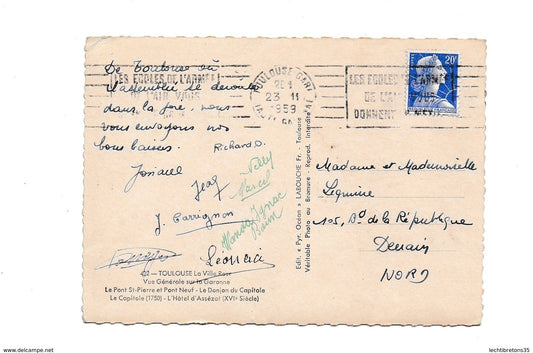 De Toulouse où
l'assemblée se déroule
dans la joie, nous
vous envoyons nos
bons baisers. Richard D.
Josiane
Jean
Nelly
Marcel
J. Carrignon
Wanda Ignac
402 — TOULOUSE La Ville Rose
Vue Générale sur la Garonne
Le Pont St-Pierre et Pont Neuf - Le Donjon du Capitole
Le Capitole (1750) - L'Hôtel d'Assézat (XVIe Siècle)
Edit « Pyr. Océan » LABOUCHE Fr. - Toulouse
Véritable Photo au Bromure - Reprod. Interdite
TOULOUSE GARE
23 11
1959
LES ECOLES DE L'ARMÉE
DE L'AIR VOUS
LES ECOLES DE L'ARMÉE
DE L'AIR VOUS
DONNENT
20F
Madame et Mademoiselle
Lequime
105, Bd de la République
Denain
NORD
www.delcampe.net
lechtibretons35